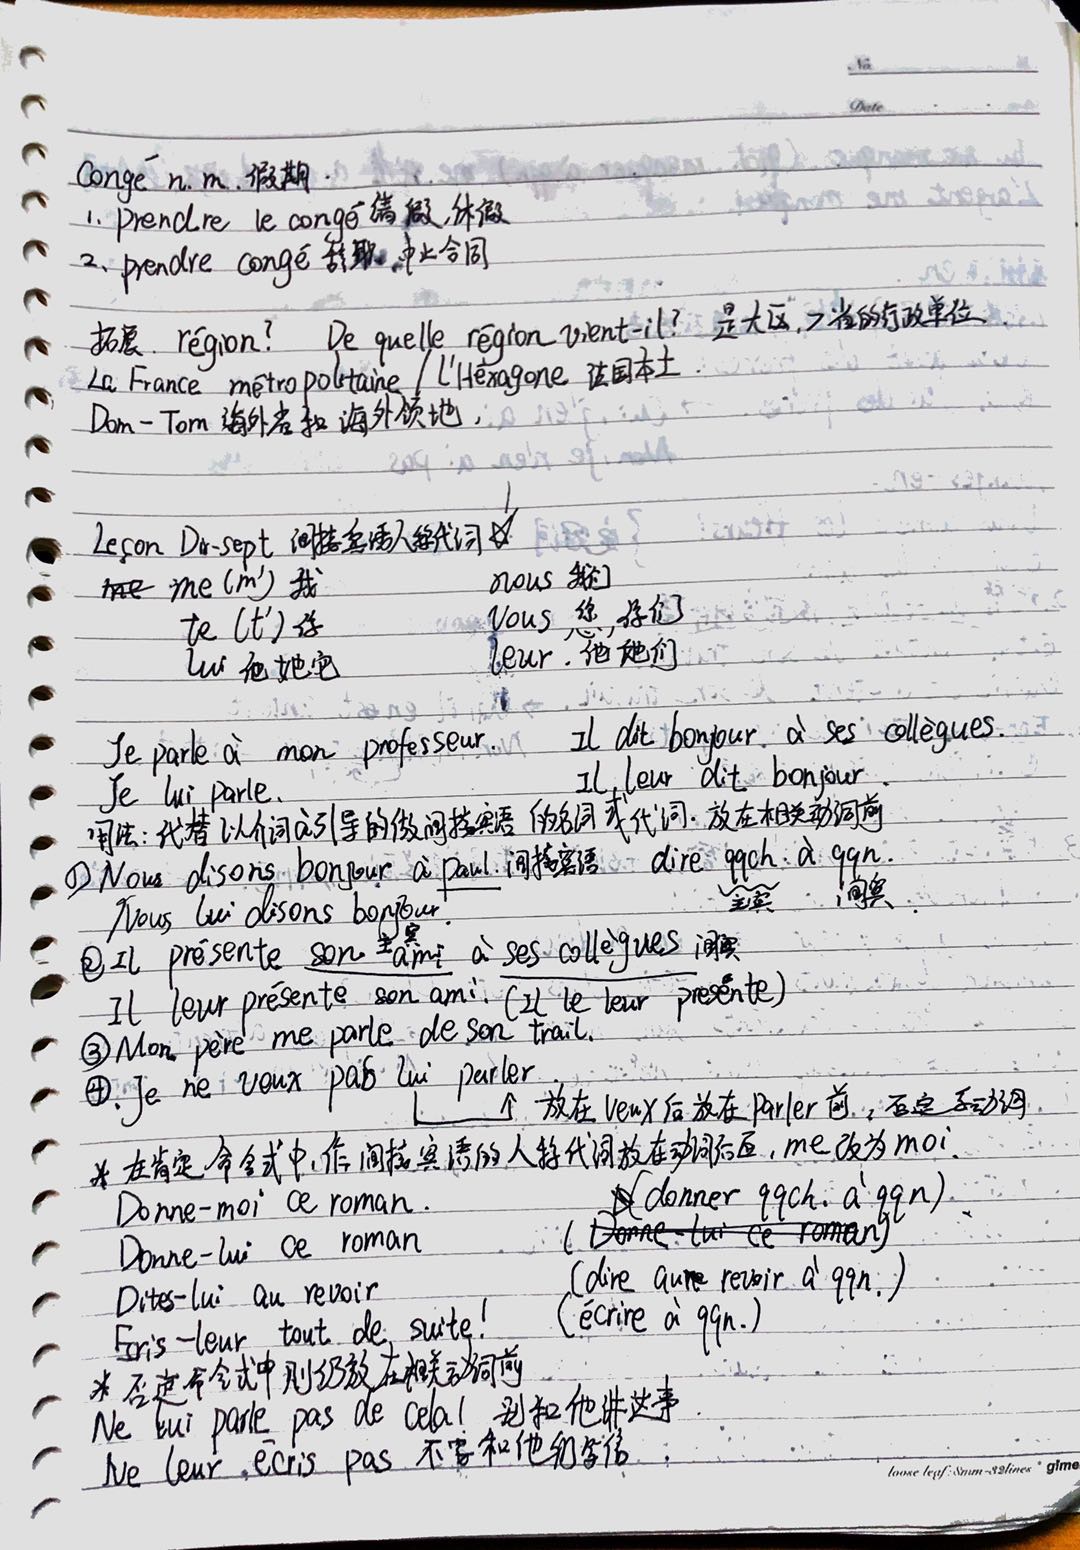 No
Date
Congé n.m. 假期.
1. prendre le congé 请假,休假
2、prendre congé 辞职,中止合同
拓展. région? De quelle région vient-il? 是大区,>省的行政单位.
La France métropolitaine / l'Héxagone 法国本土.
Dom-Tom 海外省和海外领地.
Leçon Dix-sept 间接宾语人称代词☆
me (m') 我 nous 我们
te (t') 你 vous 您,你们
lui 他她它 leur. 他她们
Je parle à mon professeur. Il dit bonjour à ses collègues.
Je lui parle. Il leur dit bonjour.
用法:代替以介词à引导的做间接宾语的名词或代词.放在相关动词前
① Nous disons bonjour à paul. 间接宾语 dire qqch. à qqn.
Nous lui disons bonjour. 直宾 间宾.
② Il présente son ami 直宾 à ses collègues 间宾
Il leur présente son ami. (Il le leur présente)
③ Mon père me parle de son trail.
④. Je ne veux pas lui parler
放在veux后放在parler前,否定系动词.
* 在肯定命令式中,作间接宾语的人称代词放在动词后面,me改为moi.
Donne-moi ce roman. (donner qqch. à qqn)
Donne-lui ce roman (Donne-lui ce roman)
Dites-lui au revoir (dire au revoir à qqn.)
Ecris-leur tout de suite! (écrire à qqn.)
* 否定命令式中则仍放在相关动词前
Ne lui parle pas de cela! 别和他讲这事.
Ne leur écris pas 不要和他们写信.
loose leaf: 8mm-32lines